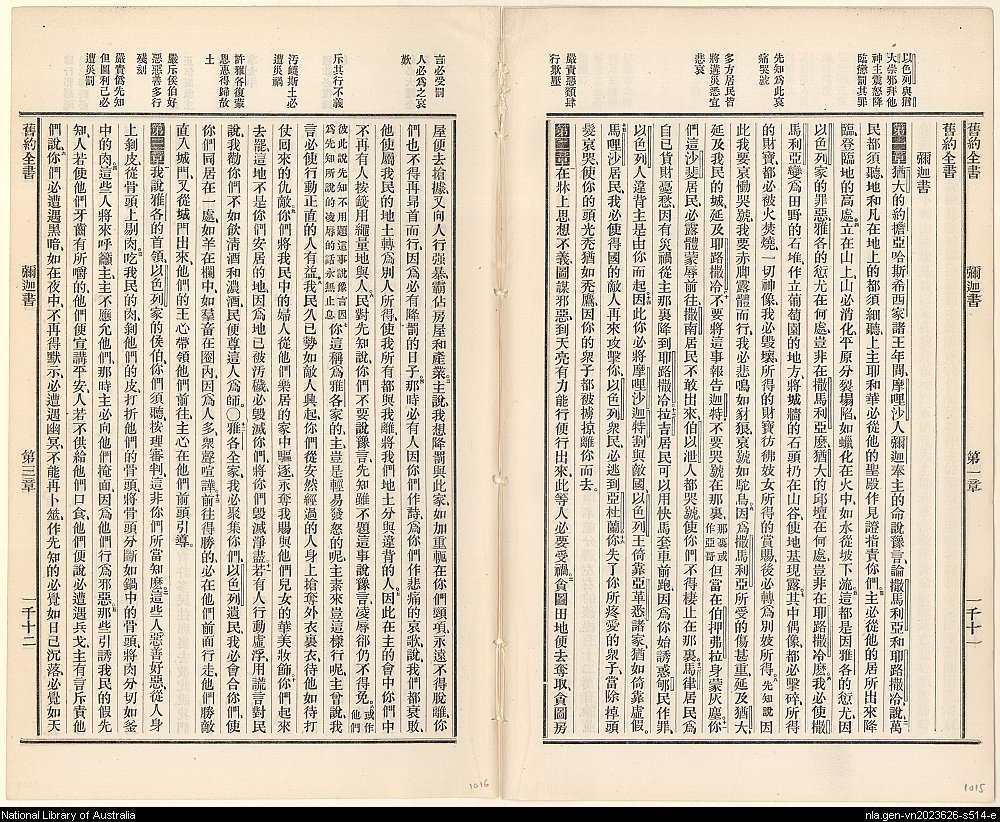 舊約全書 彌迦書 第一章 一千十一
舊約全書
彌迦書
以色列與猶
大崇邪拜他
神主震怒降
臨懲罰其罪
先知爲此哀
痛哭號
多方居民皆
將遘災悉宜
悲哀
嚴責恐頽肆
行欺壓
第一章猶大的約擔亞哈斯希西家諸王年間摩哩沙人彌迦奉主的命說豫言論撒馬利亞和耶路撒冷說萬
民都須聽地和凡在地上的都須細聽上主耶和華必從他的聖殿作見證指責你們主必從他的居所出來降
臨登臨地的高處立在山上山必消化平原分裂塌陷如蠟化在火中如水從坡下流這都是因雅各的愆尤因
以色列家的罪惡雅各的愆尤在何處豈非在撒馬利亞麽猶大的邱壇在何處豈非在耶路撒冷麽我必使撒
馬利亞變爲田野的石堆作立葡萄園的地方將城牆的石頭扔在山谷使地基現露其中偶像都必擊碎所得
的財寶都必被火焚燒一切神像我必毀壞所得的財寶彷彿妓女所得的賞賜後必轉爲別妓所得先知說因
此我要哀慟哭號我要赤脚露體而行我必悲鳴如豺狼哀號如駝鳥因爲撒馬利亞所受的傷甚重延及猶大
延及我民的城延及耶路撒冷不要將這事報告迦特不要哭號在那裏那裏或作亞哥但當在伯押弗拉身蒙灰塵你
們這沙斐居民必露體蒙辱前往撒南居民不敢出來伯以泄人都哭號使你們不得棲止在那裏馬律居民爲
自己貨財憂愁因有災禍從主那裏降到耶路撒冷拉吉居民可以用快馬套車前跑因爲你始誘惑郇民作罪
以色列人違背主是由你而起因此你必將摩哩沙迦特割與敵國以色列王倚靠亞革悉諸家猶如倚靠虛假
馬哩沙居民我必使得國的敵人再來攻擊你以色列衆民必逃到亞杜蘭你失了你所疼愛的衆子當除掉頭
髮哀哭使你的頭光禿猶如禿鷹因你的衆子都被擄掠離你而去
第二章在牀上思想不義圖謀邪惡到天亮有力能行便行出來此等人必要受禍貪圖田地便去奪取貪圖房
言必受罰
人必爲之哀
歎
斥其行不義
汚衊斯土必
遭災禍
許雅各復蒙
恩惠得歸故
土
嚴斥侯伯好
惡惡善多行
殘刻
嚴責僞先知
但圖利己必
遭災罰
屋便去搶據又向人行强暴霸佔房屋和產業主說我想降罰與此家如加重軛在你們頸項永遠不得脫離你
們也不得再昻首而行因爲必有降罰的日子那時必有人因你們作詩爲你們作悲痛的哀歌說我們都衰敗
他使屬我民的地土轉爲別人所得使我所有都與我離將我們地土分與違背的人因此在主的會中你們中
不再有人按鬮用繩量地與人民對先知說你們不要說豫言先知雖不題這事說豫言凌辱卻仍不得免或作他們
彼此說先知不用題這事說豫言因爲先知所說的凌辱的話永無止息你這稱爲雅各家的主豈是輕易發怒的呢主素來豈這樣行呢主會說我
言必使行動正直的人有益我民久已勢如敵人興起你們從安然經過的人身上搶奪外衣裏衣待他如待打
仗回來的仇敵你們將我民中的婦人從他們樂居的家中驅逐永奪我賜與他們兒女的華美妝飾你們起來
去罷這地不是你們安居的地因爲地已被汚穢必毀滅你們將你們毀滅淨盡若有人行動虛浮用謊言對民
說我勸你們不如飲清酒和濃酒民便尊這人爲師○雅各全家我必聚集你們以色列遺民我必會合你們使
你們同居在一處如羊在欄中如羣畜在圈內因爲人多衆聲喧譁前往得勝的必在他們前面而行走他們勝敵
直入城門又從城門出來他們的王心帶領他們前往主心在他們前頭引導
第三章我說雅各的首領以色列家的侯伯你們須聽按理審判這非你們所當知麽這些人惡善好惡從人身
上剝皮從骨頭上剔肉吃我民的肉剝他們的皮打折他們的骨頭將骨頭分斷如鍋中的骨頭將肉分切如釜
中的肉這些人將來呼籲主主不應允他們那時主必向他們掩面因爲他們行爲邪惡那些引誘我民的假先
知人若使他們牙齒有所嚼的他們便宣講平安人若不供給他們口食他們便說必遭遇兵戈主有言斥責他
們說你們必遭遇黑暗如在夜中不再得默示必遭遇幽冥不能再卜筮作先知的必覺如日已沉落必覺如天
舊約全書 彌迦書 第三章 一千十二
1016
1015
National Library of Australia
nla.gen-vn2023626-s514-e